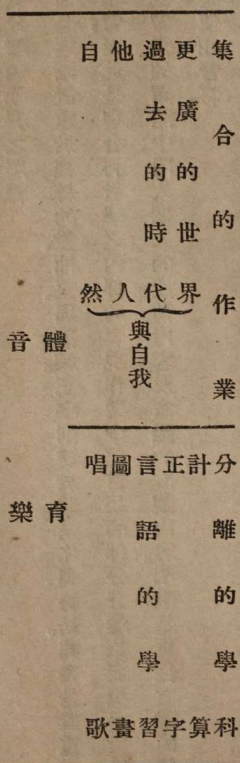 集合的作業
更廣的世界
過去的時代
他人
自然
與自我
分離的學科
計算
正字
言語的學習
圖畫
唱歌
體育
音樂